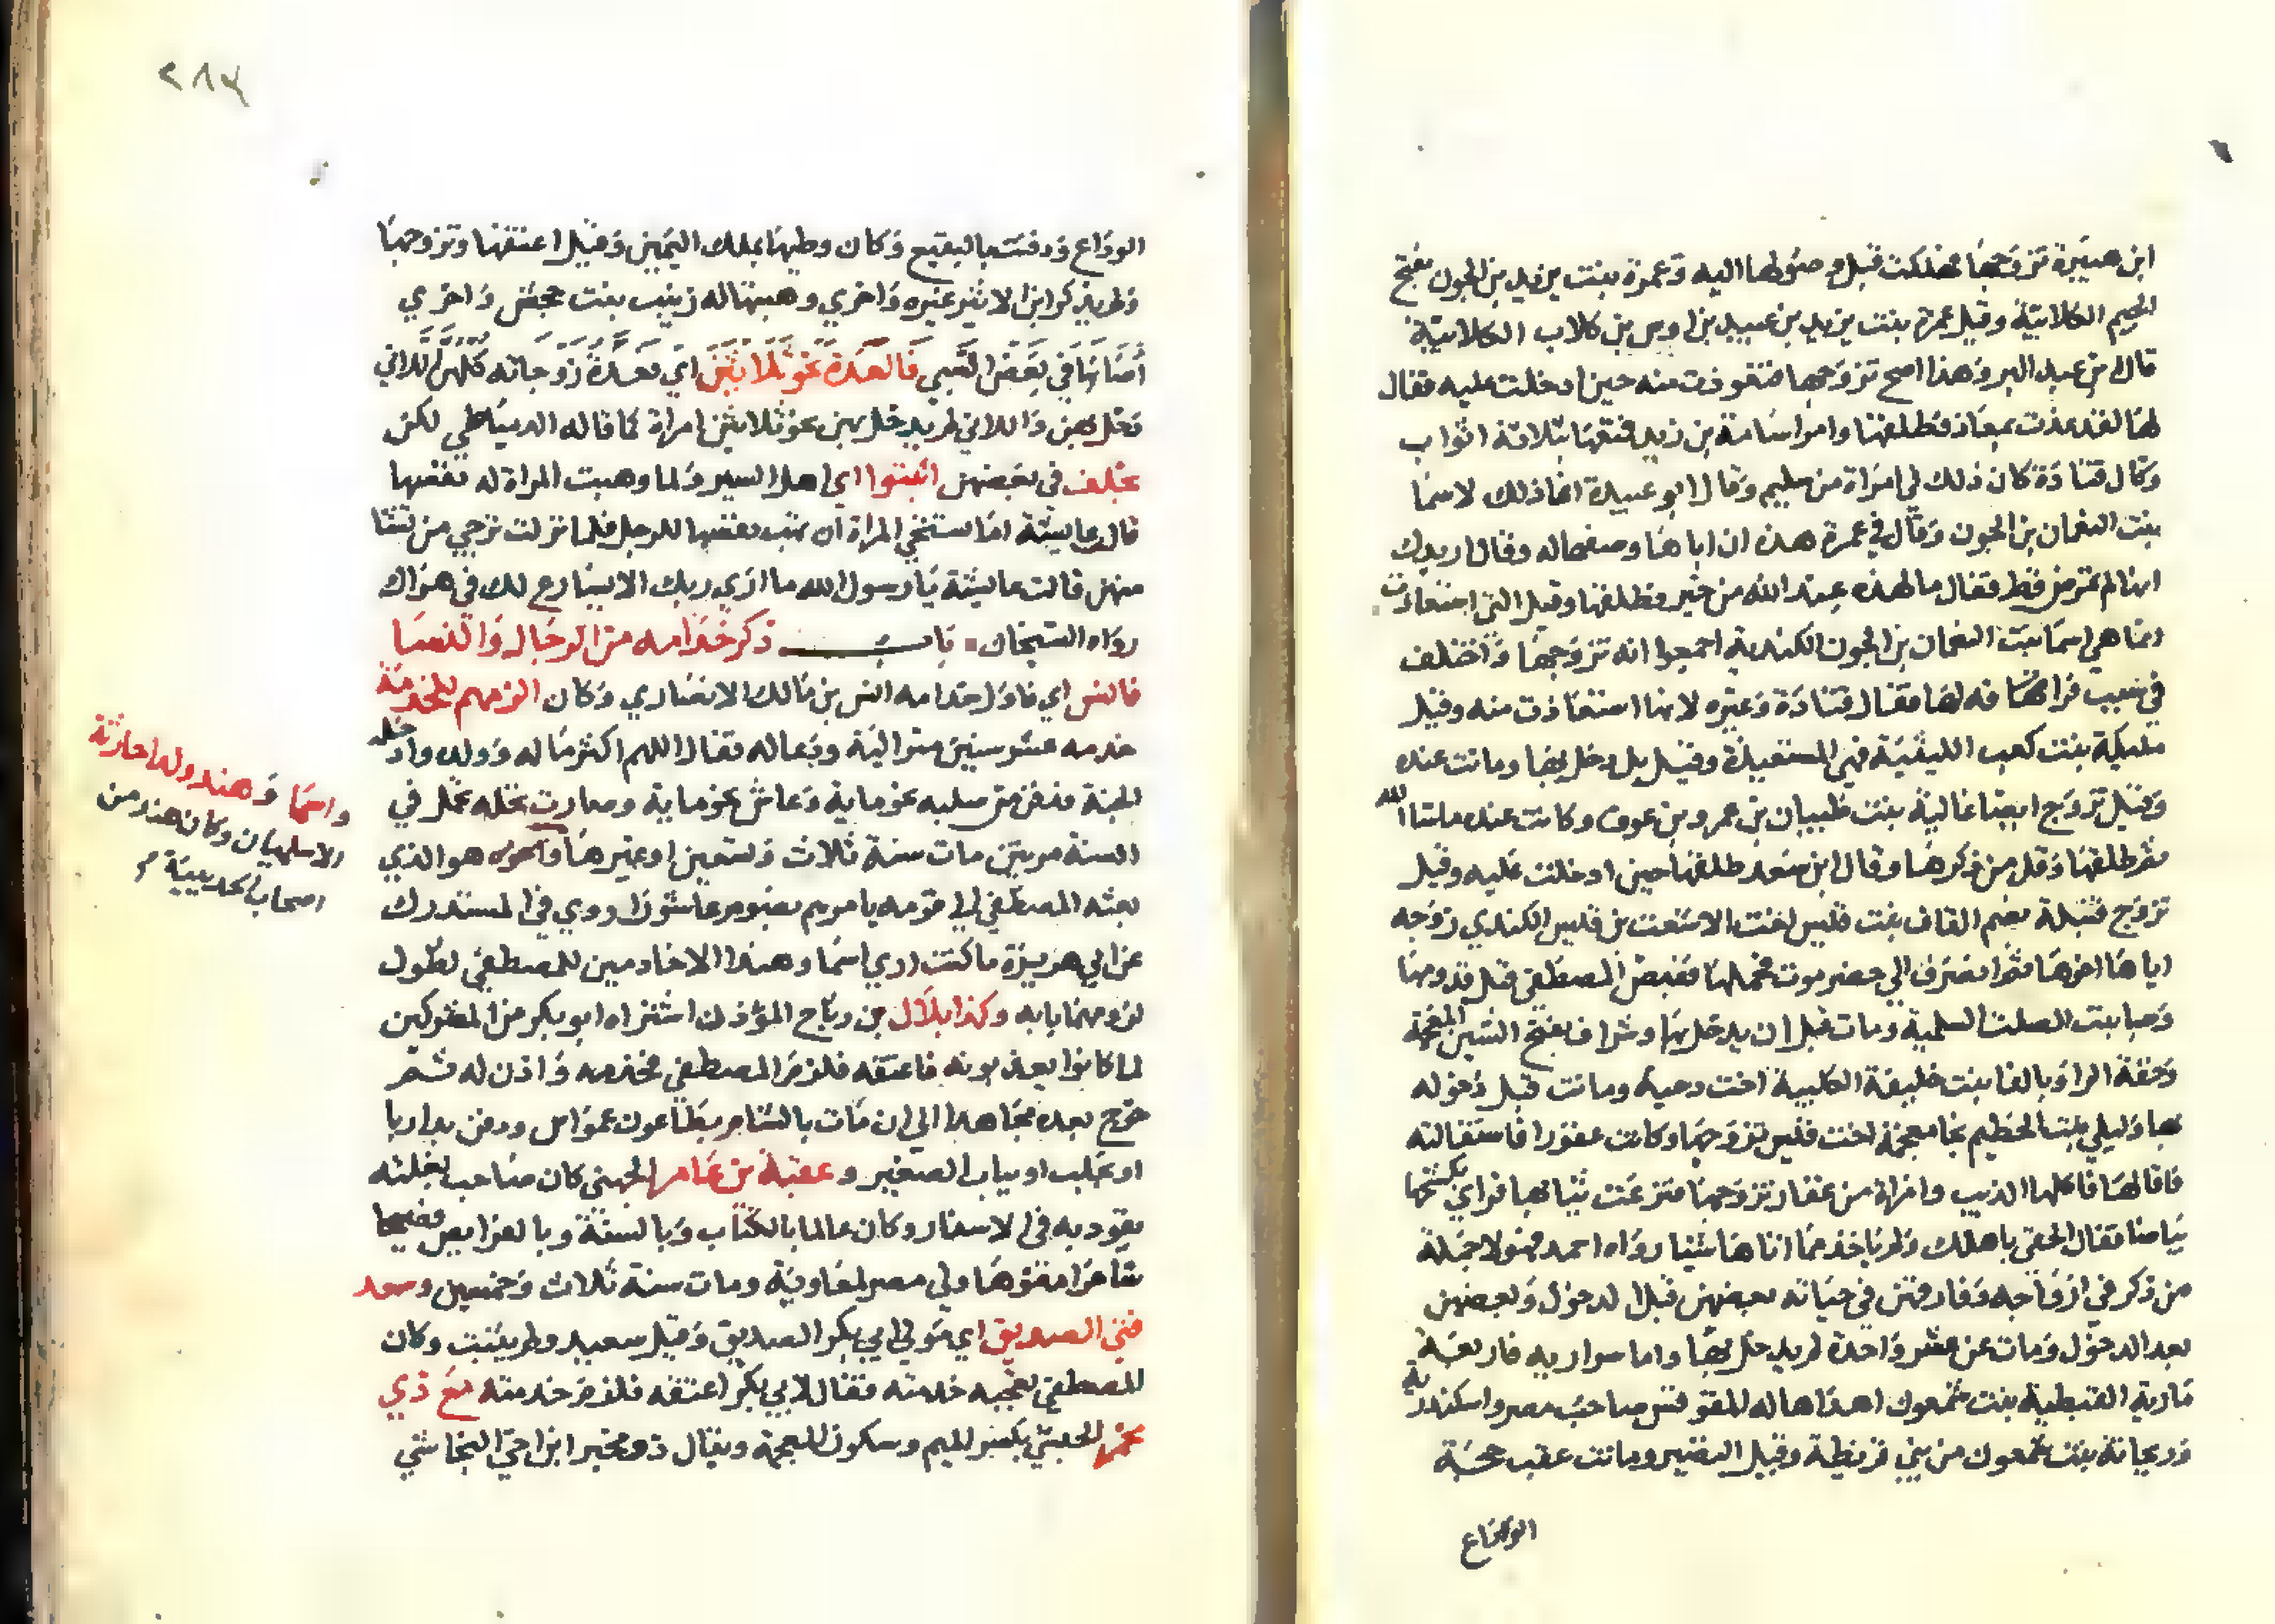 ابن هبيرة تزوجها فهلكت قبل وصولها اليه وعمرة بنت يزيد بن الجون بفتح
الجيم الكلابية وقيل عمرة بنت يزيد بن عبيد بن اوس بن كلاب الكلابية
قال ابن عبد البر وهذا اصح تزوجها فتعوذت منه حين ادخلت عليه فقال
لها لقد عذت بمعاذ فطلقها وامر اسامة بن زيد فمتعها بثلاثة اثواب
وقال قتادة كان ذلك في امراة من سليم وقال ابو عبيدة انما ذلك لاسما
بنت النعمان بن الجون وقال في عمرة هذه ان اباها وصفها له وقال ازيدك
انها لم تمرض قط فقال ما لهذه عند الله من خير فطلقها وقيل التي استعاذت
انما هي اسما بنت النعمان بن الجون الكندية اجمعوا انه تزوجها واختلف
في سبب فراقه لها فقال قتادة وغيره لانها استعاذت منه وقيل
مليكة بنت كعب الليثية فهي المستعيذة وقيل بل دخل بها وماتت عنده
وقيل تزوج ايضا غالية بنت ظبيان بن عمرو بن عوف وكانت عنده ماشا الله
ثم طلقها وقل من ذكرها وقال ابن سعد طلقها حين ادخلت عليه وقيل
تزوج قتيلة بضم القاف بنت قيس اخت الاشعث بن قيس الكندي زوجه
اياها اخوها ثم انصرف الي حضرموت فحملها فقبض المصطفي قبل قدومها
وسبا بنت الصلت السلمية ومات قبل ان يدخل بها وشراف بفتح الشين المعجمة
وخفة الرا وبالفا بنت خليفة الكلبية اخت دحية وماتت قبل دخوله
بها وليلي بنت الخطيم بخا معجمة اخت قيس تزوجها وكانت غفورا فاستقالته
فاقالها فاكلها الذيب وامراة من غفار تزوجها فنزعت ثيابها فراي بكشحها
بياضا فقال الحقي باهلك ولم ياخذ مما اتاها شيئا رواه احمد فهولا جملة
من ذكر في ازواجه وفارقهن في حياته بعضهن قبل الدخول وبعضهن
بعد الدخول ومات عن عشر واحدة لم يدخل بها واما سراريه فاربعة
مارية القبطية بنت شمعون اهداها له المقوقس صاحب مصر واسكندرية
وريحانة بنت شمعون من بني قريظة وقيل النضير وماتت عقب حجة
الوداع
٢٨٣
الوداع ودفنت بالبقيع وكان وطيها بملك اليمين وقيل اعتقها وتزوجها
ولم يذكر ابن الاثير غيره واخري وهبتها له زينب بنت جحش واخري
اصابها في بعض السبي فالعدة نحو ثلاثين اي فعدة زوجاته كلهن اللاتي
دخل بهن واللاتي لم يدخل بهن نحو ثلاثين امراة كما قاله الدمياطي لكن
بخلف في بعضهن اثبتوا اي اهل السير ولما وهبت المراة له نفسها
قال عايشة اما تستحي المراة ان تهب نفسها للرجل فلما نزلت ترجي من تشا
منهن قالت عايشة يا رسول الله ما اري ربك الا يسارع لك في هواك
رواه الشيخان باب ذكر خدامه من الرجال والنسا
فانس اي فاول خدامه انس بن مالك الانصاري وكان الزمهم للخدمة
خدمه عشر سنين متوالية ودعا له فقال اللهم اكثر ماله وولده وادخله
الجنة فدفن من صلبه نحو ماية وعاش نحو ماية وصارت نخله تحمل في
السنة مرتين مات سنة ثلاث وتسعين او غيرها واخوه هو الذي
بعثه المصطفي الي قومه يامرهم بصوم عاشورا وروي في المستدرك
عن ابي هريرة ما كنت اري اسما وهندا الا خادمين للمصطفي لطول
لزومهما بابه وكذا بلال بن رباح المؤذن اشتراه ابو بكر من المشركين
لما كانوا يعذبونه فاعتقه فلزم المصطفي فخدمه واذن له ثم
خرج بعده مجاهدا الي ان مات بالشام بطاعون عمواس ودفن بداريا
او بحلب او بباب الصغير وعقبة بن عامر الجهني كان صاحب بغلته
يقود به في الاسفار وكان عالما بالكتاب وبالسنة وبالفرايض فصيحا
شاعرا مفوها ولي مصر لمعاوية ومات سنة ثلاث وخمسين وسعد
فتي الصديق اي مولي ابي بكر الصديق وقيل سعيد ولم يثبت وكان
المصطفي يعجبه خدمته فقال لابي بكر اعتقه فلزم خدمته مع ذي
مخمر الحبشي بكسر الميم وسكون المعجمة ويقال ذو مخبر ابن اخي النجاشي
واسما وهند ولدا حارثة
الاسلميان وكان هند من
اصحاب الحديبية